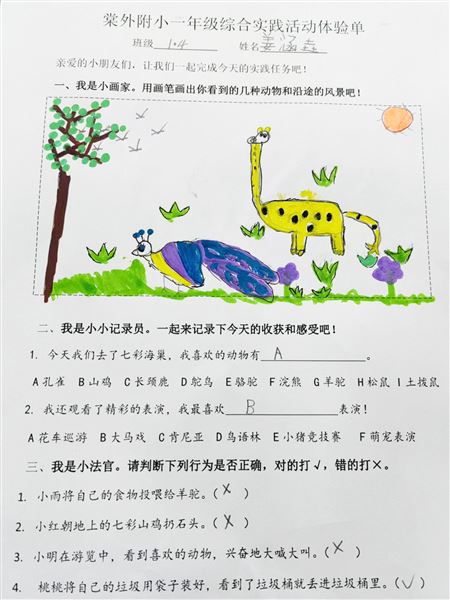 棠外附小一年级综合实践活动体验单
班级 1.4 姓名 姜涵垚
亲爱的小朋友们，让我们一起完成今天的实践任务吧！
一、我是小画家。用画笔画出你看到的几种动物和沿途的风景吧！
二、我是小小记录员。一起来记录下今天的收获和感受吧！
1. 今天我们去了七彩海巢，我喜欢的动物有 A 。
A孔雀 B山鸡 C长颈鹿 D鸵鸟 E骆驼 F浣熊 G羊驼 H松鼠 I土拨鼠
2. 我还观看了精彩的表演，我最喜欢 B 表演！
A花车巡游 B大马戏 C肯尼亚 D鸟语林 E小猪竞技赛 F萌宠表演
三、我是小法官。请判断下列行为是否正确，对的打√，错的打×。
1. 小雨将自己的食物投喂给羊驼。（×）
2. 小红朝地上的七彩山鸡扔石头。（×）
3. 小明在游览中，看到喜欢的动物，兴奋地大喊大叫。（×）
4. 桃桃将自己的垃圾用袋子装好，看到了垃圾桶就丢进垃圾桶里。（√）